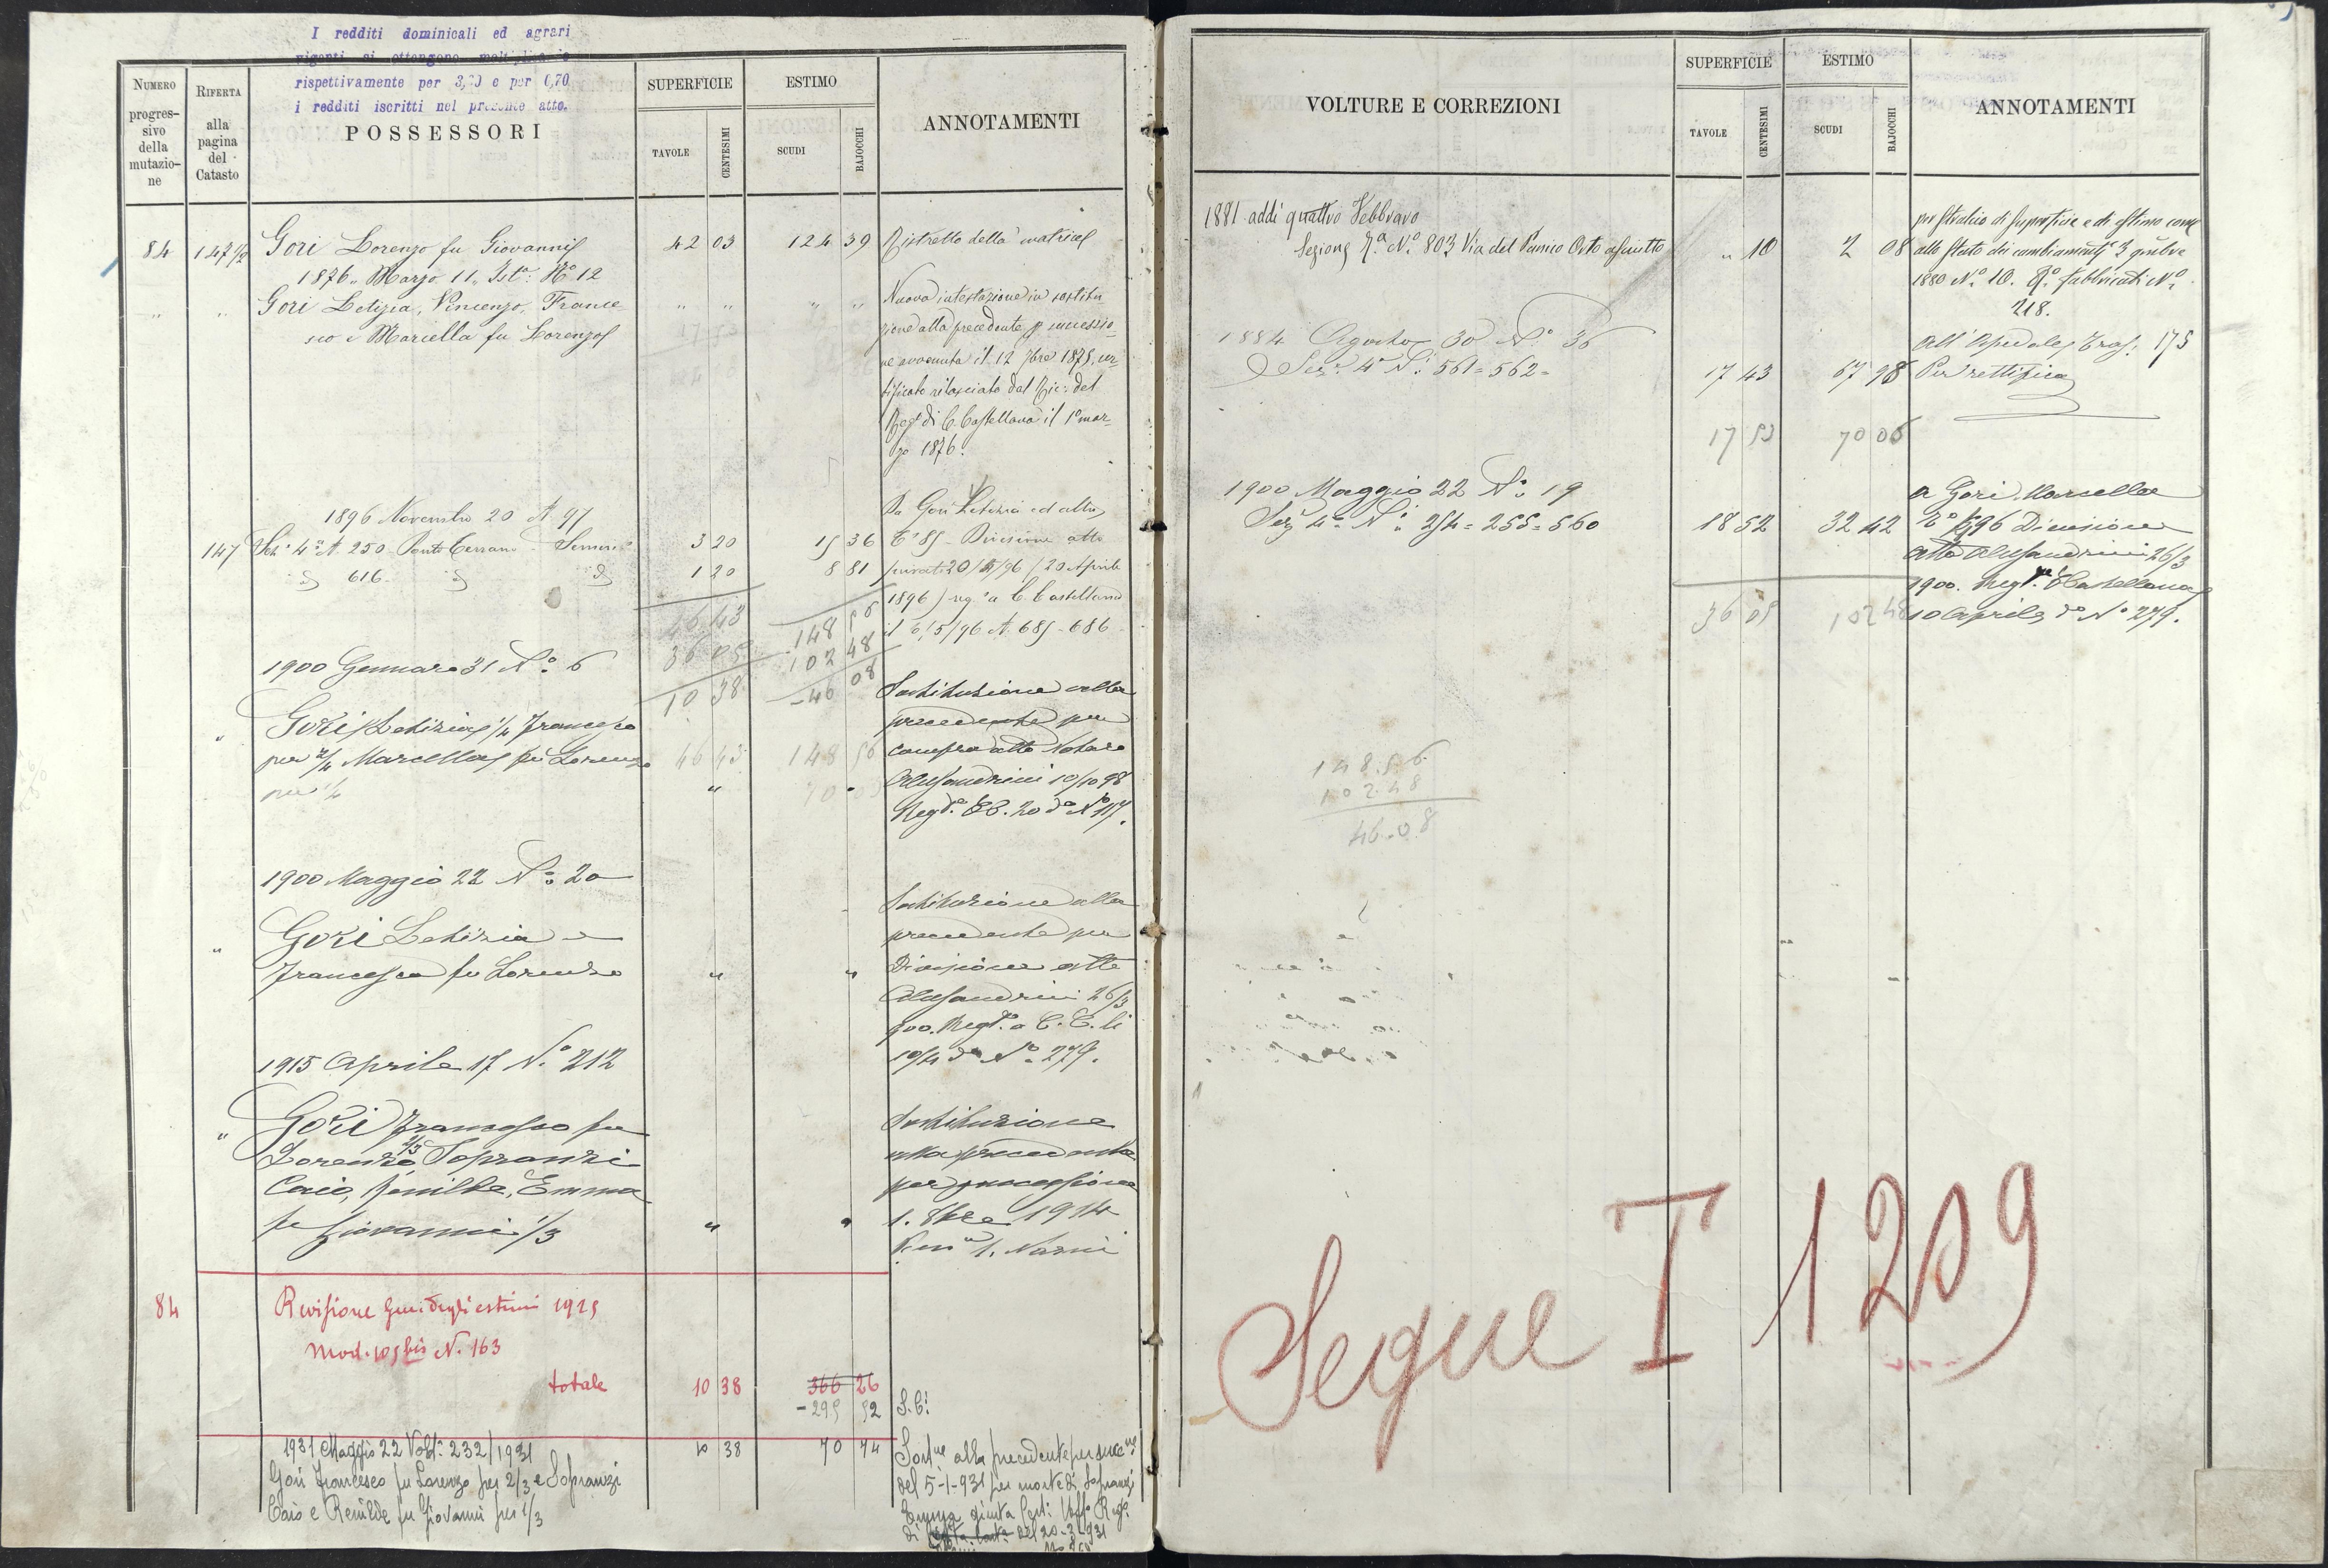 I redditi dominicali ed agrari
vigenti si ottengono
rispettivamente per e per 0,70
i redditi iscritti nel presente atto.
NUMERO
progres-
sivo
della
mutazio-
ne
RIFERTA
alla
pagina
del
Catasto
POSSESSORI
SUPERFICIE
TAVOLE
CENTESIMI
ESTIMO
SCUDI
BAJOCCHI
ANNOTAMENTI
84 Gori Lorenzo fu Giovanni 42 03 124 39 Ristretto della matrice
1876 Marzo 11 Ist.: No 12
" " Gori Letizia, Vincenzo, France- " " " " Nuova intestazione in sostitu-
sco e Mariella fu Lorenzo zione alla precedente
ne avvenuta il 12 1875, cer-
tificato rilasciato dal Ric: del
Reg. di C. Castellana il 1° mar-
zo 1876.
1896 Novembre 20 N 97 Da Gori Letizia ed altri
147 Sez. 4a N. 250 Ponte Cerrano 3 20 15 36 Divisione atto
id 616 id id 1 20 8 81 20 Aprile
46 43 148 56 1896) reg. a C. Castellana
36 05 102 48 il 6/5/96 N. 685-686
10 38 46 08
1900 Gennaro 31 No. 6
" Gori Letizia 1/4 Francesco Sostituzione alla
per 2/4 Marcella fu Lorenzo 46 43 148 56 precedente per
per 1/4 " " compra atto Notaro
Alessandrini 10/10 98
1900 Maggio 22 No. 20
" Gori Letizia e Sostituzione alla
Francesco fu Lorenzo " " precedente per
Divisione atto
Alessandrini 26/3
900. Regto a C. C. li
10/4 do No. 279.
1915 Aprile 17 N. 212
" Gori Francesco fu Sostituzione
Lorenzo 2/3, Sopranzi alla precedente
Caio, Emma per successione
fu Giovanni 1/3 " " 1. 8bre 1914
84 Revisione Gen. degli estimi 1925
Mod. 105 bis N. 163
totale 10 38 366 26
- 295 52 S.C:
1931 Maggio 22 Volt. 232/1931 10 38 70 74 Sostne alla precedente per succne
Gori Francesco fu Lorenzo per 2/3 e Sopranzi del 5-1-931 per morte di Sopranzi
Caio e Renilde fu Giovanni per 1/3 Emma giusta Cert: Uffo Rego
di del 20-3-931
VOLTURE E CORREZIONI
SUPERFICIE
TAVOLE
CENTESIMI
ESTIMO
SCUDI
BAJOCCHI
ANNOTAMENTI
1881 addì quattro Febbraro per stralcio di superficie e di estimo come
Sezione No. 803 Via del Panico Orto asciutto " 10 2 08 allo stato dei cambiamenti
1880 No. 10. Fabbricati No.
218.
1884 Agosto 30 No. 36 All'Ospedale
Sez. 4a N. 561 = 562 = 17 43 67 98 Per rettifica
17 53 70 06
1900 Maggio 22 No. 19 a Gori Marcella
Sez. 4a N. 254 = 255 = 560 18 52 32 42 Divisione
atto Alessandrini 26/3
1900. Regto Castellana
36 05 102 48 10 Aprile do No 279.
148.56
102.48
46.08
Segue I 1209